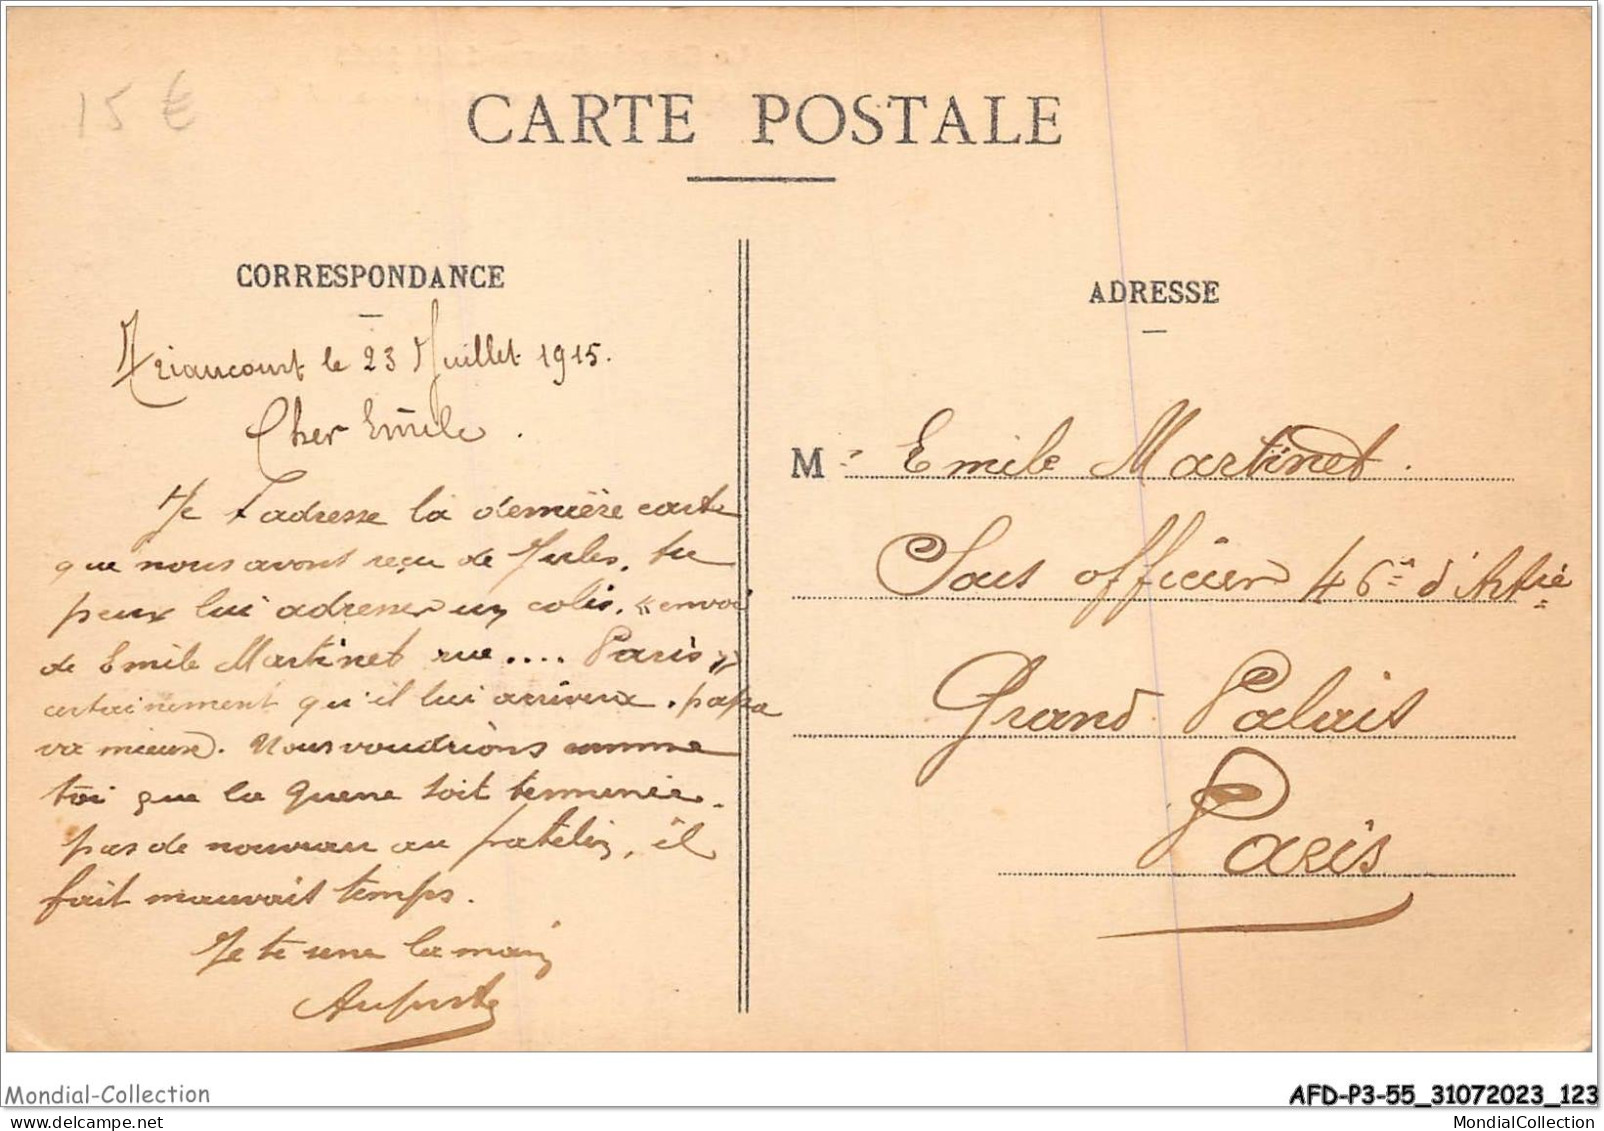 15 €
CARTE POSTALE
CORRESPONDANCE
le 23 Juillet 1915.
Cher Emile.
Je t'adresse la dernière carte
que nous avont reçu de Jules, tu
peux lui adresser un colis. « envoi
de Emile Martinet rue .... Paris »
certainement qu'il lui arrivera. papa
va mieux. Nous voudrions comme
toi que la Guerre soit terminée.
pas de nouveau au patelin, il
fait mauvais temps.
Je te serre la main
Auguste
ADRESSE
M. Emile Martinet.
Sous officier 46e d'Artie
Grand Palais
Paris
Mondial-Collection
AFD-P3-55_31072023_123
www.delcampe.net
MondialCollection